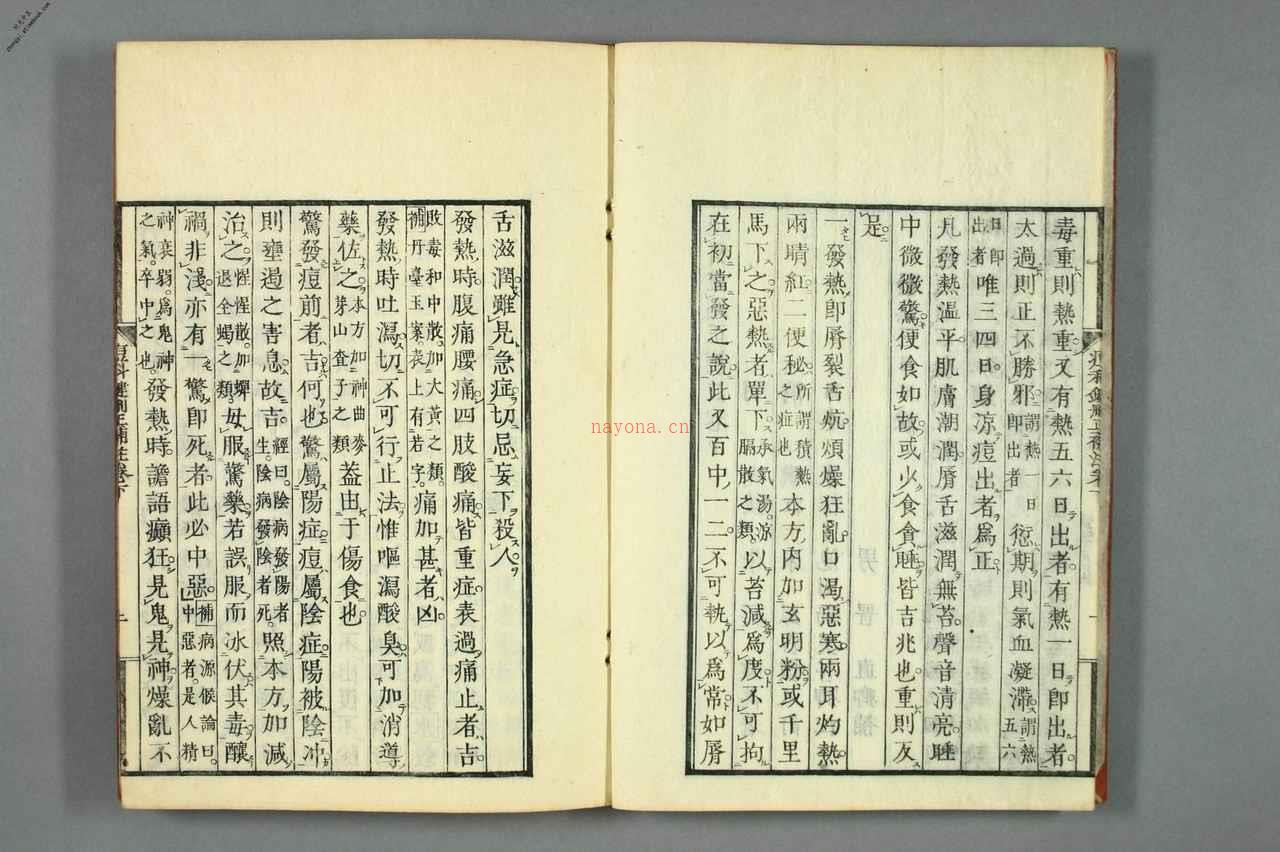 毒重則熱重又有熱五六日出者有熱一日即出者
太過則正不勝邪謂熱一日即出者愆期則氣血凝滯謂熱五六
日即出者唯三四日身涼痘出者爲正
凡發熱溫平肌膚潮潤脣舌滋潤無苔聲音清亮睡
中微微驚便食如故或少食貪睡皆吉兆也重則反
是
一發熱即脣裂舌炕煩燥狂亂口渴惡寒兩耳灼熱
兩睛紅二便秘所謂積熱之症也本方内加玄明粉或千里
馬下之惡熱者單下承氣湯涼膈散之類以苔減爲度不可拘
在初當發之說此又百中一二不可執以爲常如脣
舌滋潤雖見急症切忌妄下殺人
發熱時腹痛腰痛四肢酸痛皆重症表過痛止者吉
敗毒和中散加大黃之類補丹臺玉案表上有若字痛加甚者凶
發熱時吐瀉切不可行止法惟嘔瀉酸臭可加消導
藥佐之本方加神曲麥芽山查子之類蓋由于傷食也
驚發痘前者吉何也驚屬陽症痘屬陰症陽被陰冲
則壅遏之害息故吉經曰陰病發陽者生陰病發陰者死照本方加減
治之惺惺散加蟬退全蝎之類毋服驚藥若誤服而冰伏其毒釀
禍非淺亦有一驚即死者此必中惡補病源候論曰中惡者是人精
神衰弱爲鬼神之氣卒中之也發熱時譫語癲狂見鬼見神燥亂不
nayona.cn